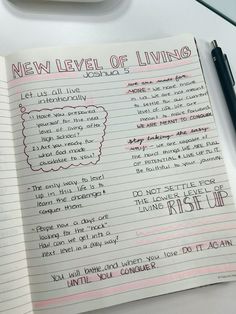 NEW LEVEL OF LIVING
Joshua 5
Let us all live
intentionally
1.) Have you prepared
yourself for the next
level of living after
high school?
2.) Are you ready for
what God made
available to you?
- The only way to level
up in this life is to
learn the challenges &
conquer them.
- People now a days are
looking for the "hack"
How can we get into a
next level in a lazy way?
we are made for
MORE - we have made
in us. We are not meant
to settle for our current
level of life. We are
meant to make forward
WE ARE MEANT TO CONQUER
Stop taking the easy
way - we are capable of
the hard things WE ARE FULL
OF POTENTIAL & LIVE UP TO IT. Be
faithful to your journey.
DO NOT SETTLE FOR
THE LOWER LEVEL OF
LIVING RISE UP
You will battle and when you lose DO IT AGAIN
UNTIL YOU CONQUER